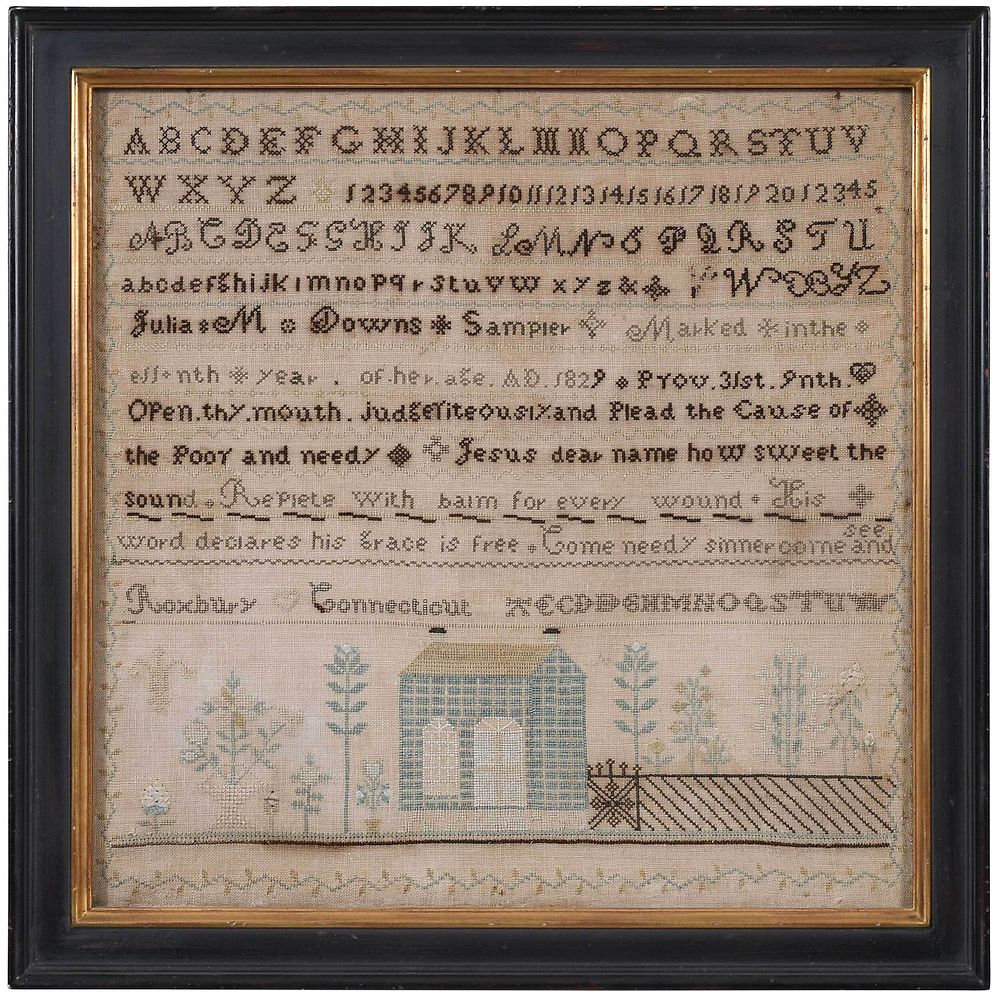 A B C D E F G H I J K L M N O P Q R S T U V
W X Y Z 1 2 3 4 5 6 7 8 9 10 11 12 13 14 15 16 17 18 19 20 1 2 3 4 5
A B C D E F G H I J K L M N O P Q R S T U
a b c d e f g h i j k l m n o p q r s t u v w x y z & W X Y Z
Julia M Downs Sampler Marked in the
year . of . her . age . AD . 1829 Prov . 31st . 9nth .
Open . thy . mouth . judge riteously and Plead the Cause of
the Poor and needy Jesus dear name how sweet the
sound . Replete with balm for every wound . His
see
word declares his grace is free . Come needy sinner come and
Roxbury Connecticut A C C D D E H M N O Q S T U W